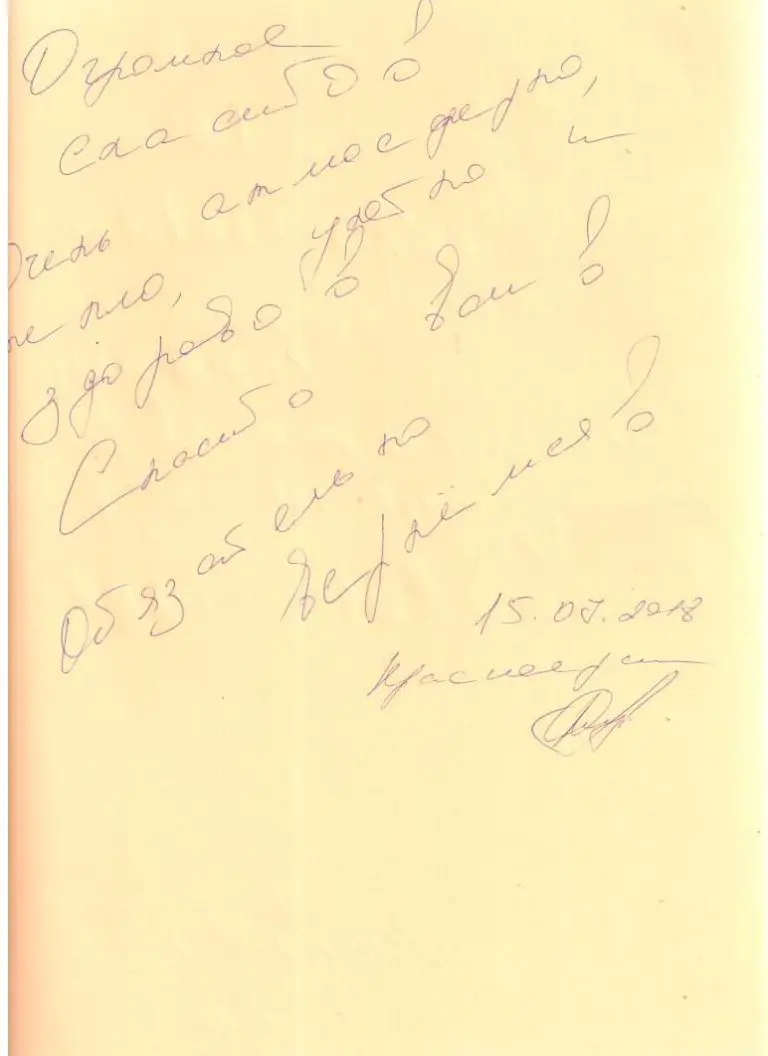 Огромное
спасибо!
Очень атмосферно,
тепло, уютно и
здорово! Вам!
Спасибо
Обязательно
вернёмся!
15.07.2018